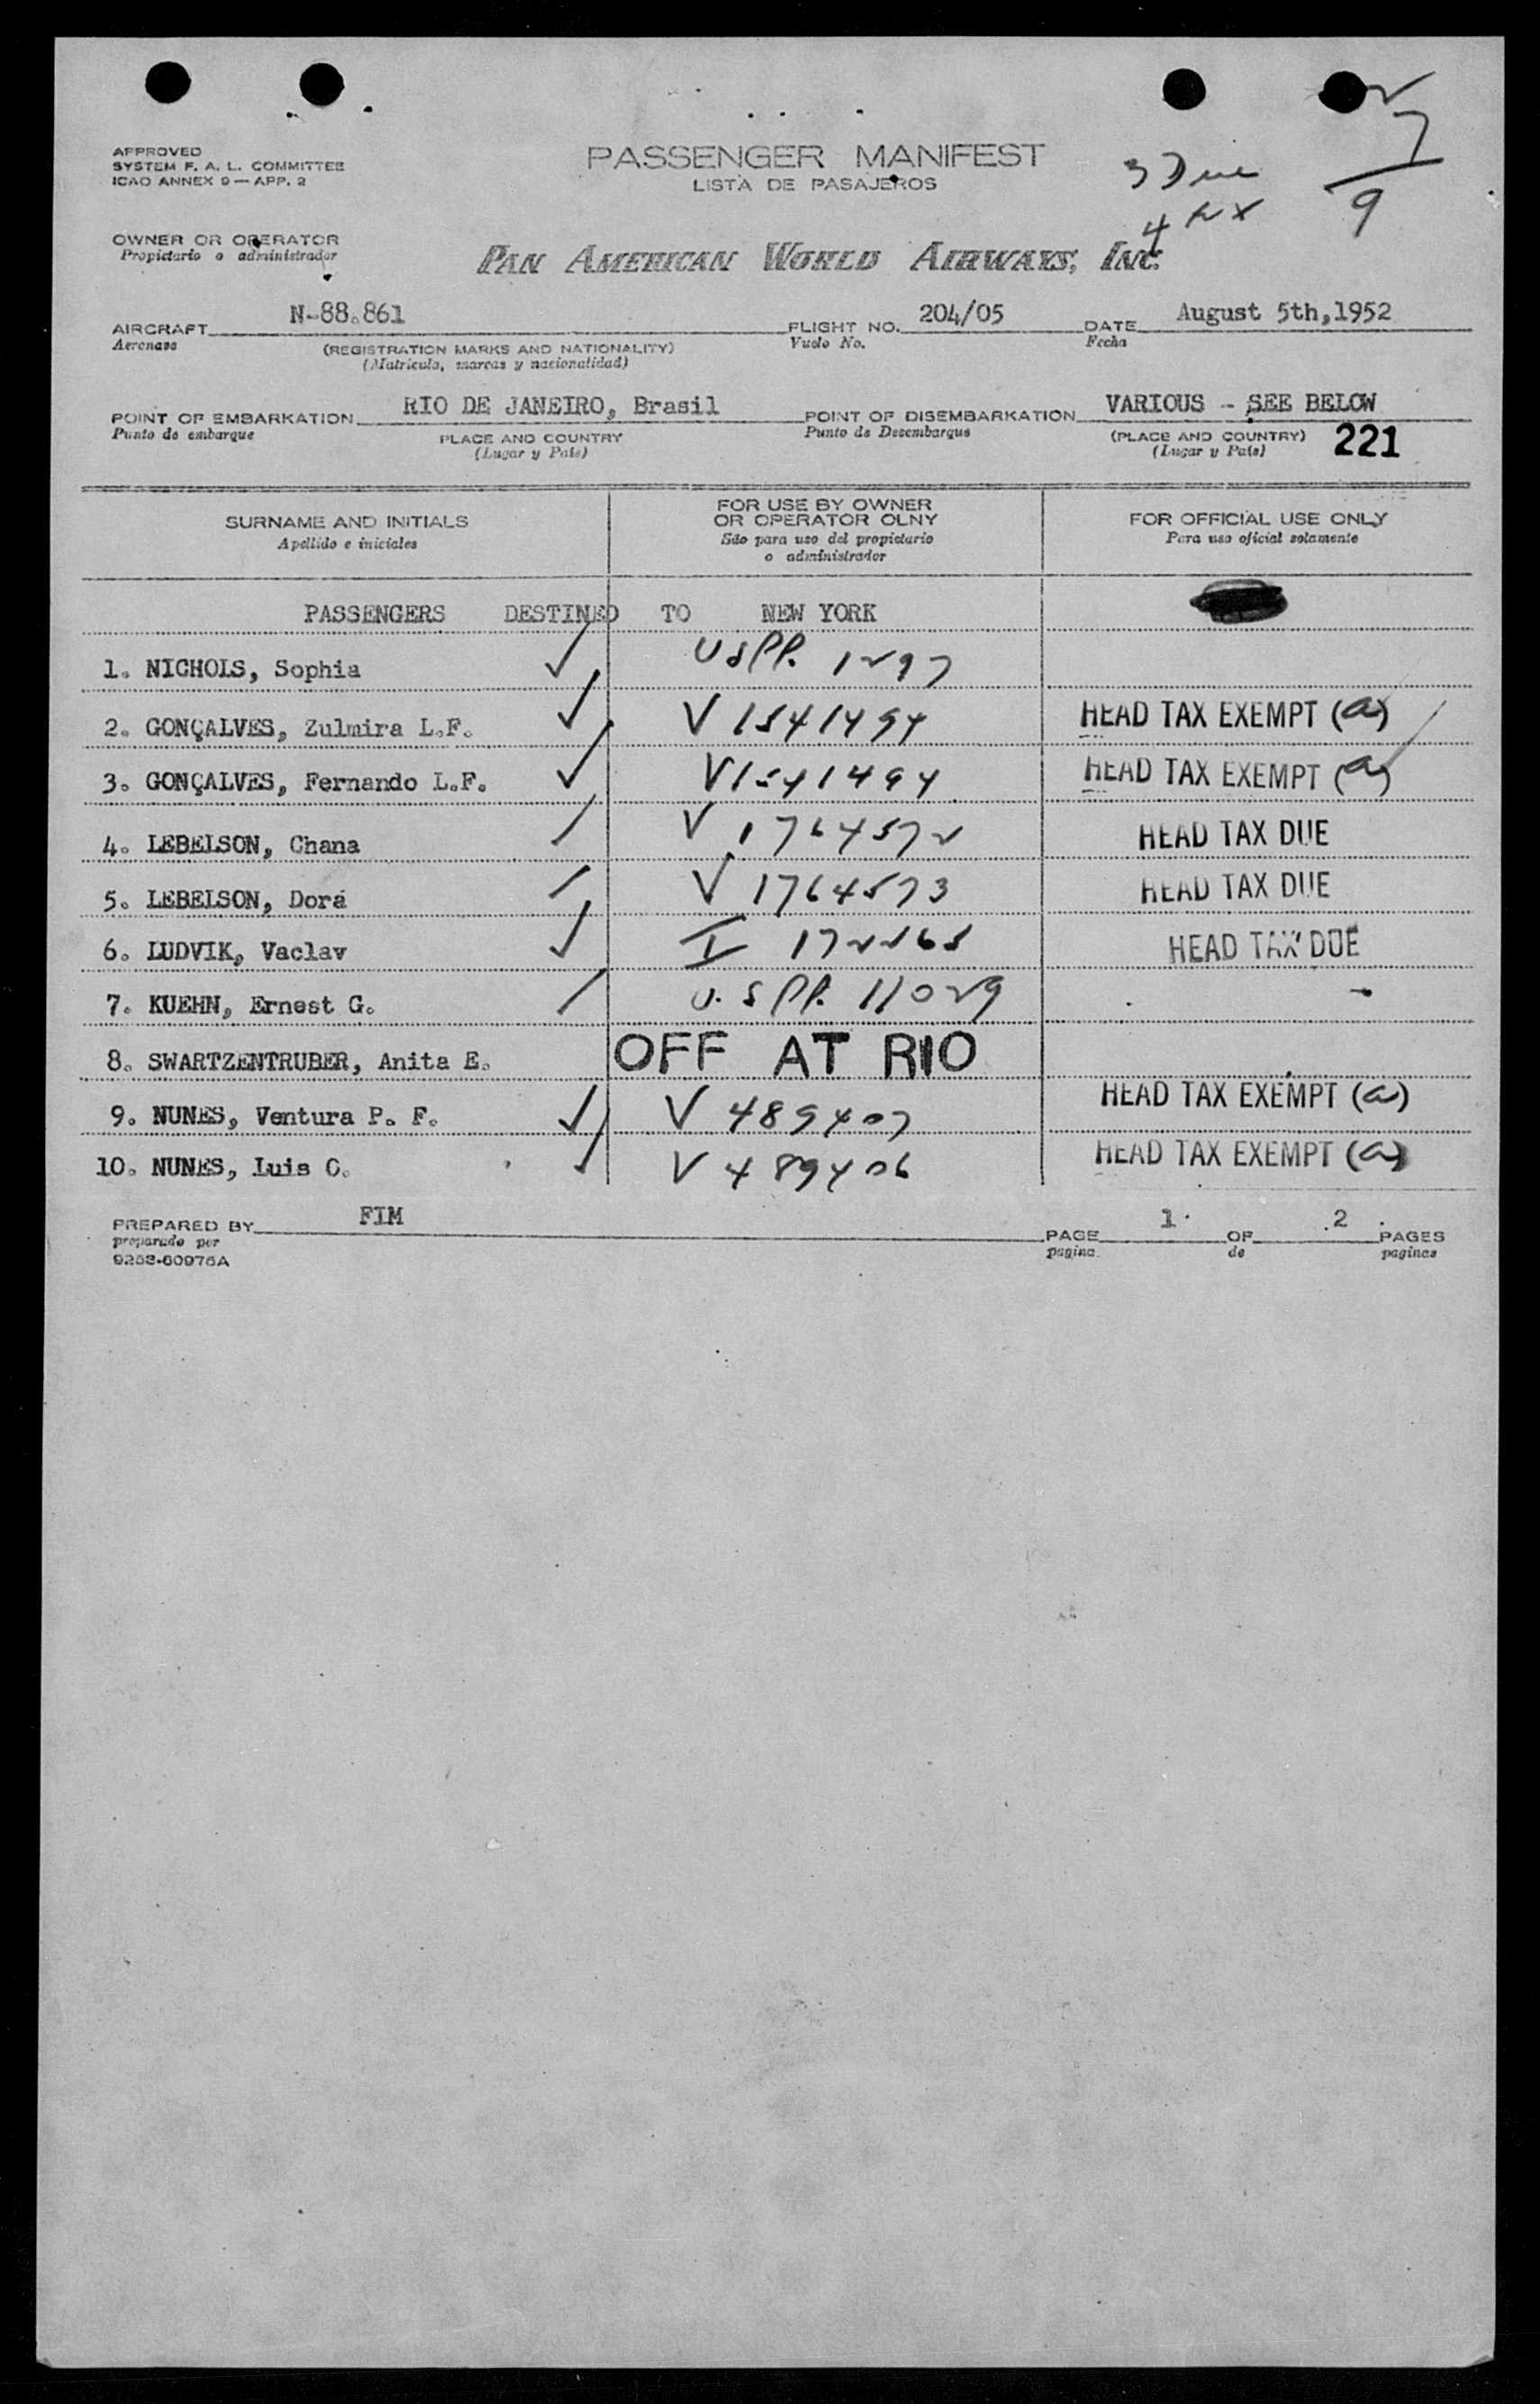 APPROVED
SYSTEM F. A. L. COMMITTEE
ICAO ANNEX 9 — APP. 2
PASSENGER MANIFEST
LISTA DE PASAJEROS
3 Due
4 
2
7
9
OWNER OR OPERATOR
Propietario o administrador
PAN AMERICAN WORLD AIRWAYS, INC.
AIRCRAFT N-88.861 FLIGHT NO. 204/05 DATE August 5th,1952
Aeronave Vuelo No. Fecha
(REGISTRATION MARKS AND NATIONALITY)
(Matricula, marcas y nacionalidad)
POINT OF EMBARKATION RIO DE JANEIRO, Brasil POINT OF DISEMBARKATION VARIOUS - SEE BELOW
Punto de embarque PLACE AND COUNTRY Punto de Desembarque (PLACE AND COUNTRY) 221
(Lugar y País) (Lugar y País)
SURNAME AND INITIALS
Apellido e iniciales
FOR USE BY OWNER
OR OPERATOR OLNY
São para uso del propietario
o administrador
FOR OFFICIAL USE ONLY
Para uso oficial solamente
PASSENGERS DESTINED TO NEW YORK
1. NICHOLS, Sophia ✓ USPP. 1297
2. GONÇALVES, Zulmira L.F. ✓ V 1541494 HEAD TAX EXEMPT (a)
3. GONÇALVES, Fernando L.F. ✓ V1541494 HEAD TAX EXEMPT (a)
4. LEBELSON, Chana / V 1764572 HEAD TAX DUE
5. LEBELSON, Dora / V 1764573 HEAD TAX DUE
6. LUDVIK, Vaclav ✓ I HEAD TAX DUE
7. KUEHN, Ernest G. / U.S PP. 11029 -
8. SWARTZENTRUBER, Anita E. OFF AT RIO
9. NUNES, Ventura P. F. ✓ V 489407 HEAD TAX EXEMPT (a)
10. NUNES, Luis C. ✓ V 489406 HEAD TAX EXEMPT (a)
PREPARED BY FIM PAGE 1 OF 2 PAGES
preparado por pagina de paginas
9253-60975A